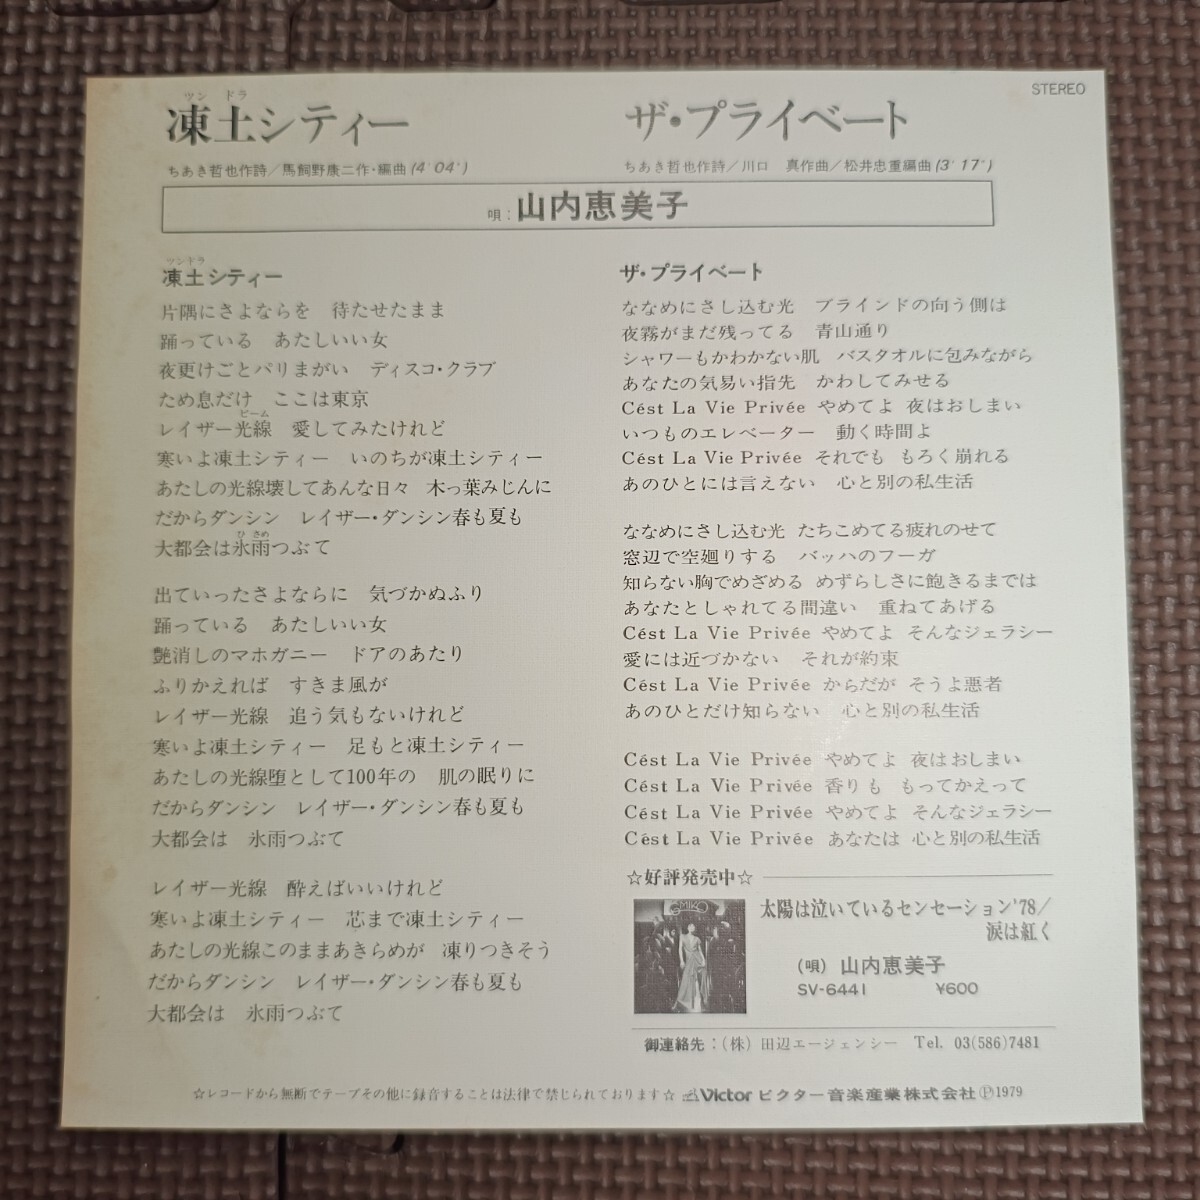 STEREO
ツンドラ
凍土シティー
ちあき哲也作詩／馬飼野康二作・編曲(4′04″)
ザ・プライベート
ちあき哲也作詩／川口　真作曲／松井忠重編曲(3′17″)
唄：山内恵美子
ツンドラ
凍土シティー
片隅にさよならを　待たせたまま
踊っている　あたしいい女
夜更けごとパリまがい　ディスコ・クラブ
ため息だけ　ここは東京
ビーム
レイザー光線　愛してみたけれど
寒いよ凍土シティー　いのちが凍土シティー
あたしの光線壊してあんな日々　木っ葉みじんに
だからダンシン　レイザー・ダンシン春も夏も
ひさめ
大都会は氷雨つぶて
出ていったさよならに　気づかぬふり
踊っている　あたしいい女
艶消しのマホガニー　ドアのあたり
ふりかえれば　すきま風が
レイザー光線　追う気もないけれど
寒いよ凍土シティー　足もと凍土シティー
あたしの光線堕として100年の　肌の眠りに
だからダンシン　レイザー・ダンシン春も夏も
大都会は　氷雨つぶて
レイザー光線　酔えばいいけれど
寒いよ凍土シティー　芯まで凍土シティー
あたしの光線このままあきらめが　凍りつきそう
だからダンシン　レイザー・ダンシン春も夏も
大都会は　氷雨つぶて
ザ・プライベート
ななめにさし込む光　ブラインドの向う側は
夜霧がまだ残ってる　青山通り
シャワーもかわかない肌　バスタオルに包みながら
あなたの気易い指先　かわしてみせる
Cést La Vie Privée やめてよ 夜はおしまい
いつものエレベーター　動く時間よ
Cést La Vie Privée それでも もろく崩れる
あのひとには言えない　心と別の私生活
ななめにさし込む光 たちこめてる疲れのせて
窓辺で空廻りする　バッハのフーガ
知らない胸でめざめる めずらしさに飽きるまでは
あなたとしゃれてる間違い　重ねてあげる
Cést La Vie Privée やめてよ そんなジェラシー
愛には近づかない　それが約束
Cést La Vie Privée からだが そうよ悪者
あのひとだけ知らない　心と別の私生活
Cést La Vie Privée やめてよ 夜はおしまい
Cést La Vie Privée 香りも もってかえって
Cést La Vie Privée やめてよ そんなジェラシー
Cést La Vie Privée あなたは 心と別の私生活
☆好評発売中☆
EMIKO
太陽は泣いているセンセーション'78／
涙は紅く
(唄) 山内恵美子
SV-6441　¥600
御連絡先：(株) 田辺エージェンシー　Tel. 03(586)7481
☆レコードから無断でテープその他に録音することは法律で禁じられております☆ Victor ビクター音楽産業株式会社 Ⓟ1979